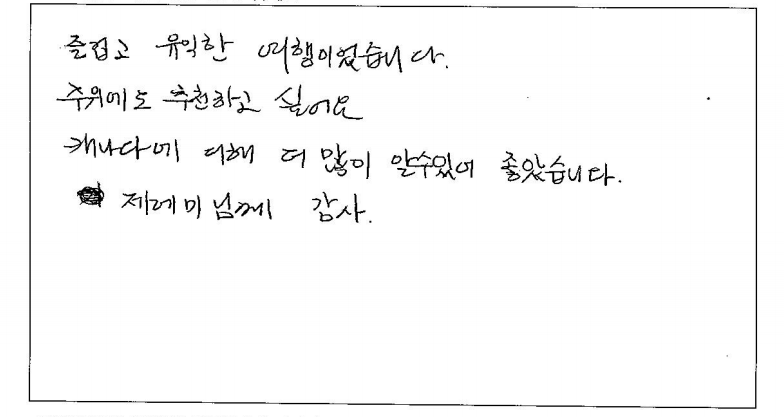 즐겁고 유익한 여행이었습니다.
주위에도 추천하고 싶어요
캐나다에 대해 더 많이 알수있어 좋았습니다.
제레미님께 감사.